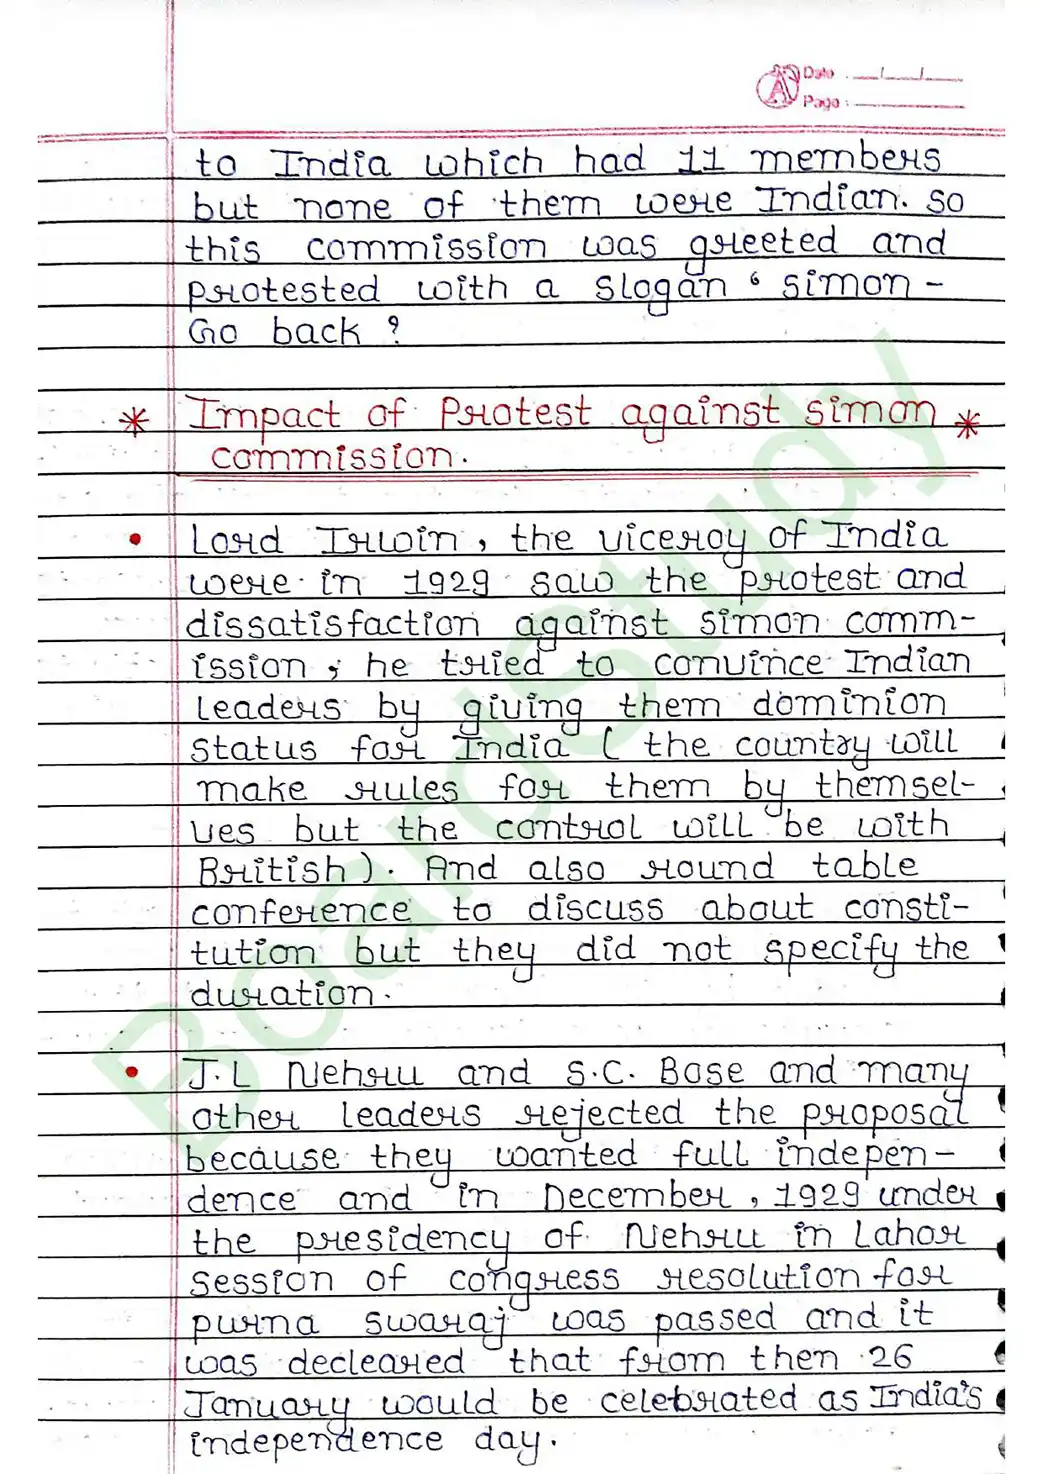 Date : __/__/__
Page :
to India which had 11 members
but none of them were Indian. so
this commission was greeted and
protested with a slogan ‘ simon -
Go back ’
* Impact of Protest against simon *
commission.
• Lord Irwin, the viceroy of India
were in 1929 saw the protest and
dissatisfaction against simon comm-
ission ; he tried to convince Indian
leaders by giving them dominion
status for India ( the country will
make rules for them by themsel-
ves but the control will be with
British ). And also round table
conference to discuss about consti-
tution but they did not specify the
duration.
• J.L Nehru and S.C. Bose and many
other leaders rejected the proposal
because they wanted full indepen-
dence and in December, 1929 under
the presidency of Nehru in Lahor
session of congress resolution for
purna swaraj was passed and it
was decleared that from then 26
January would be celebrated as India's
independence day.
BoardStudy